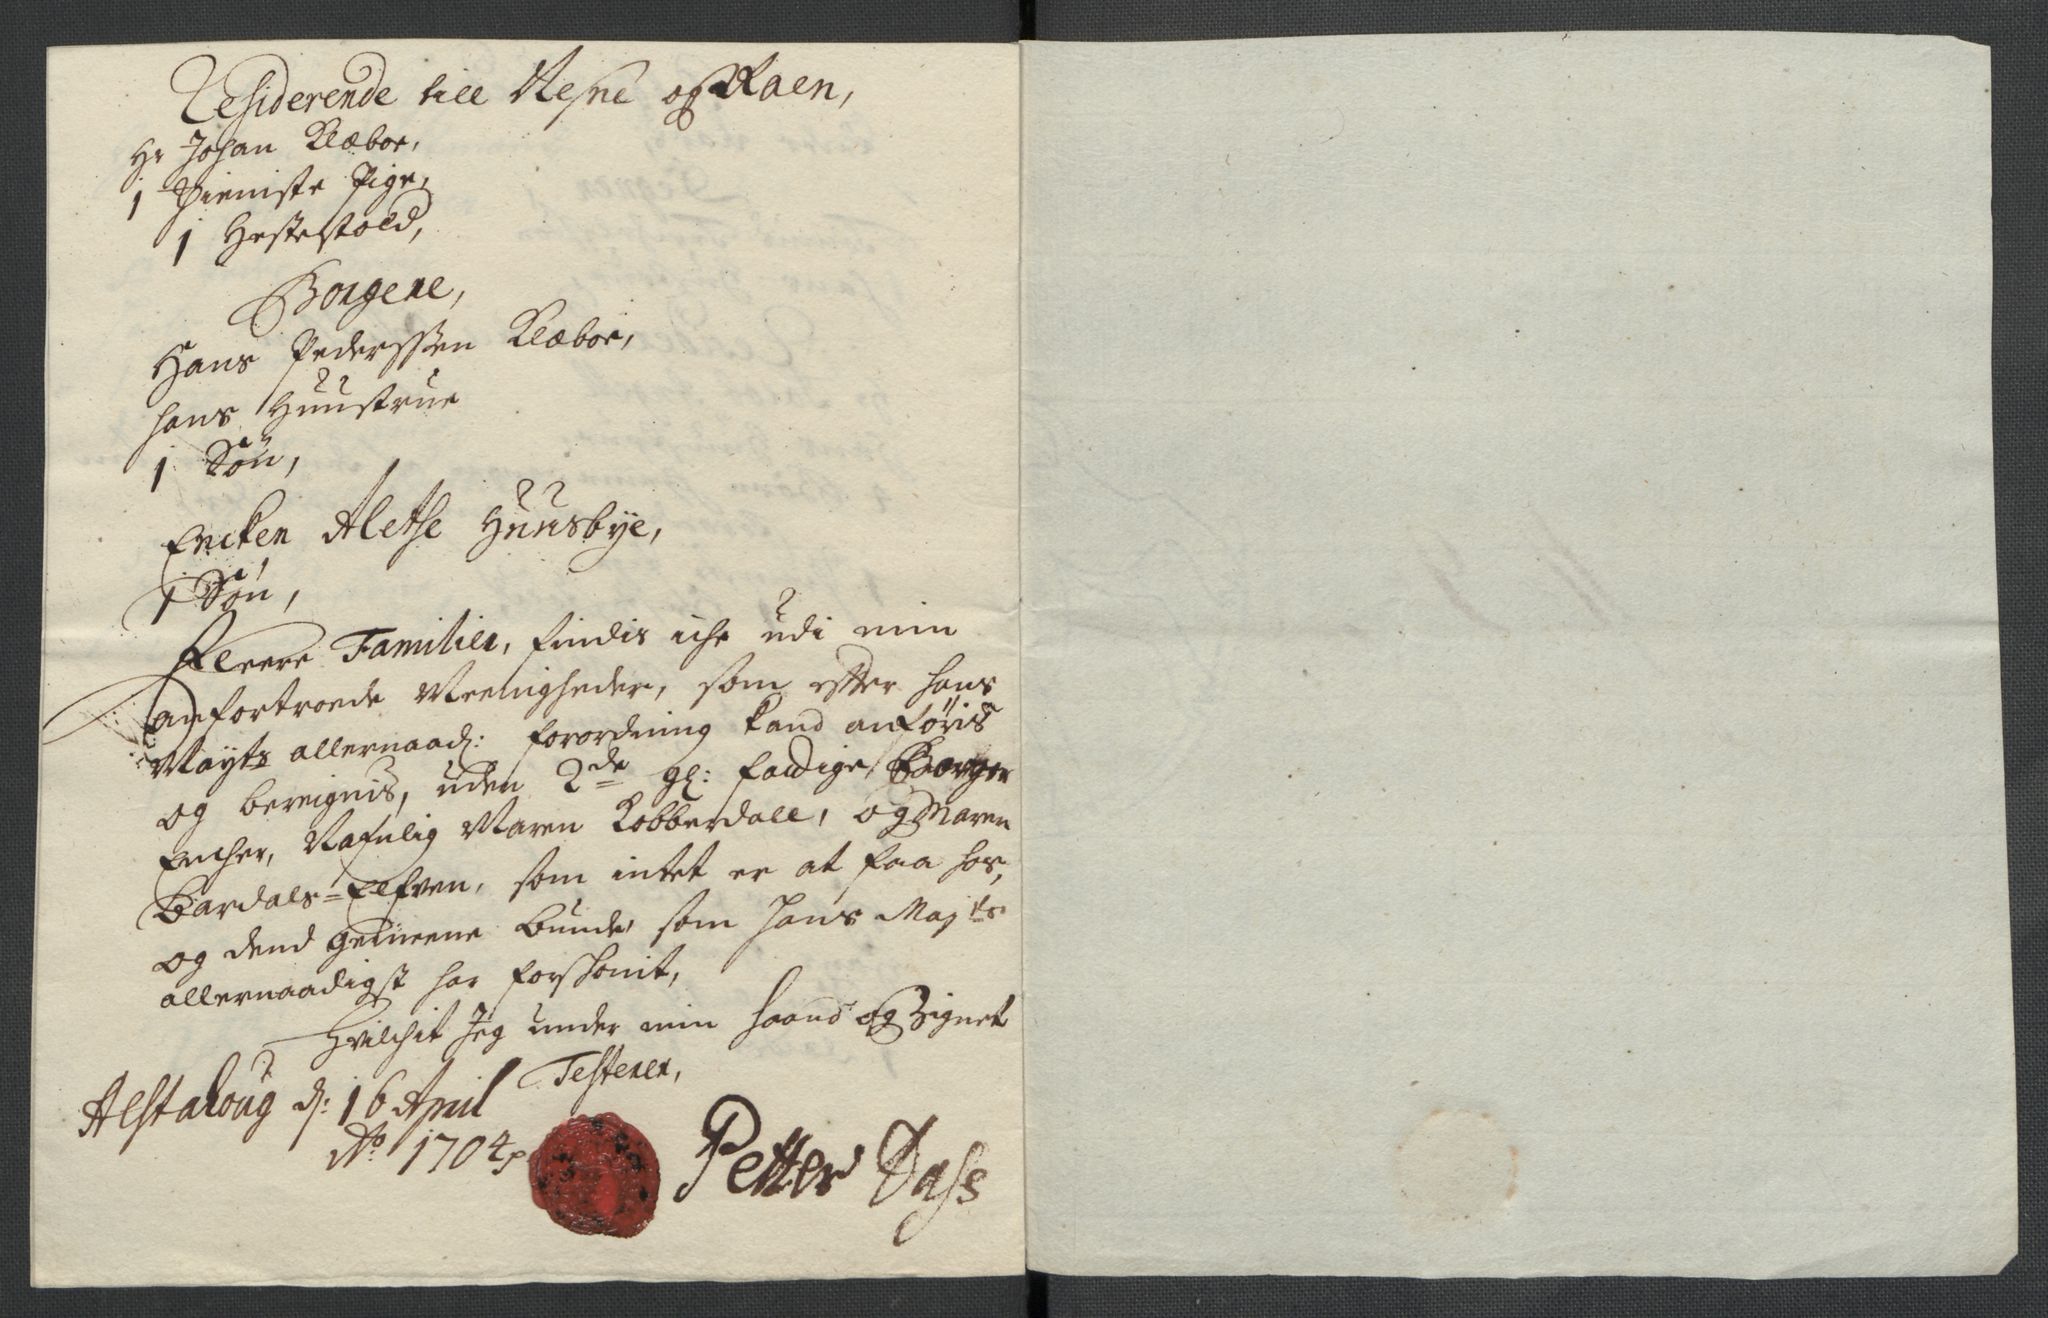 Residerende till Nesne og Raen,
Hr Johan Klæboe,
1 Tieniste Pige,
1 Hestestold,
Borgere,
Hans Pederssen Klæboe,
hans Huustrue
1 Søn,
Encken Alethe Huusbye,
1 Søn,
Fleere Familier, findis iche udi min
anfortroede Meenigheder, som efter hans
Mayts allernaad: forordning kand anføris
og beregnis, uden 2de gl: faldige Borger
Encher, Nafnlig Maren Kobberdall, og Maren
Bardals-Elfven, som intet er at faa hos,
og dend gemeene bunde, som Hans Majts
allernaadigst har forskonit,
Hvilchit Jeg under min haand og Zignet
Testerer,
Alstahoug d: 16 April
Ao 1704
Petter Dass